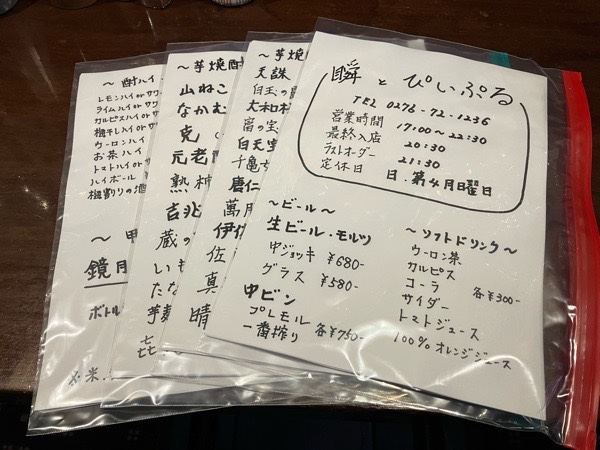 瞬とぴいぷる
TEL 0276-72-1236
営業時間 17:00~22:30
最終入店 20:30
ラストオーダー 21:30
定休日 日・第4月曜日
~ビール~
生ビール・モルツ
中ジョッキ ¥680-
グラス ¥580-
中ビン
プレモル
一番搾り 各¥750-
~ソフトドリンク~
ウーロン茶
カルピス
コーラ 各¥300-
サイダー
トマトジュース
100%オレンジジュース
~芋焼
天誅
白玉の
大和桜
富の宝
白天宝
千亀
唐仁
萬
伊佐
佐
真
晴
~芋焼酎
山ねこ
なかむ
克
元老
熟柿
吉兆
蔵の
いも
たな
芋麹
七
~酎ハイ
レモンハイ or サワ
ライムハイ or サワ
カルピスハイ or サワ
梅干しハイ or サワ
ウーロンハイ
お茶ハイ
トマトハイ or サワ
ハイボール
梅割りの酒
~甲
鏡月
ボトル
米